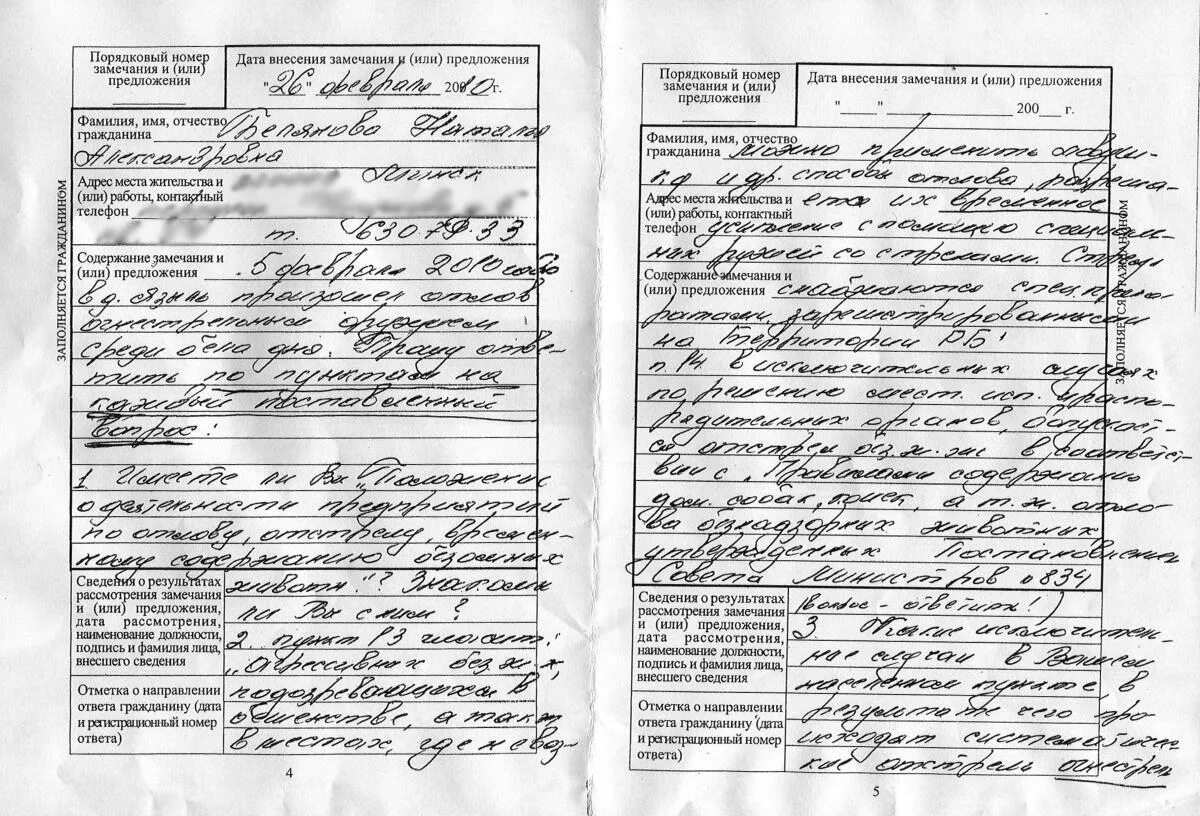 Порядковый номер
замечания и (или)
предложения
Дата внесения замечания и (или) предложения
"26" февраля 2010г.
Фамилия, имя, отчество
гражданина Белянова Наталия
Александровна
Адрес места жительства и
(или) работы, контактный
телефон
Минск
т. 630-79-33
Содержание замечания и
(или) предложения 5 февраля 2010 года
в д. язынь произошел отлов
огнестрельным оружием
среди бела дня. Прошу отве-
тить по пунктам на
каждый поставленный
вопрос:
1. Имеете ли Вы "Положение
о деятельности предприятий
по отлову, отстрелу, времен-
ному содержанию бездомных
животн."? Знакомы
ли Вы с ним?
2. пункт 13 гласит:
"агрессивных без.ж-х,
подозревающихся в
бешенстве, а также
в местах, где невоз-
ЗАПОЛНЯЕТСЯ ГРАЖДАНИНОМ
Сведения о результатах
рассмотрения замечания
и (или) предложения,
дата рассмотрения,
наименование должности,
подпись и фамилия лица,
внесшего сведения
Отметка о направлении
ответа гражданину (дата
и регистрационный номер
ответа)
4
Порядковый номер
замечания и (или)
предложения
Дата внесения замечания и (или) предложения
"___" 200 г.
Фамилия, имя, отчество
гражданина можно применить ловуш-
ки и др. способы отлова, разреша-
Адрес места жительства и
(или) работы, контактный
телефон
ется их временное
усыпление с помощью специаль-
ных ружей со стрелами. Стрелы
Содержание замечания и
(или) предложения снабжаются спец. препа-
ратами, зарегистрированными
на территории РБ!
п. 14 в исключительных случаях
по решению мест. исп. и распо-
рядительных органов, допускает-
ся отстрел без.ж-х в соответст-
вии с "Правилами содержания
дом. собак, кошек, а т.ж. отло-
ва безнадзорных животных,
утвержденных Постановлением
Совета Министров №834
(вопрос-ответить!)
3. Какие исключитель-
ные случаи в Вашем
населенном пункте, в
результате чего про
исходят системати чес-
кие отстрелы огнестрел
ЗАПОЛНЯЕТСЯ ГРАЖДАНИНОМ
Сведения о результатах
рассмотрения замечания
и (или) предложения,
дата рассмотрения,
наименование должности,
подпись и фамилия лица,
внесшего сведения
Отметка о направлении
ответа гражданину (дата
и регистрационный номер
ответа)
5